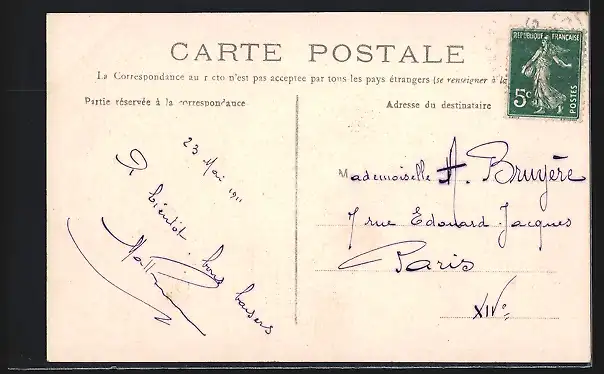 CARTE POSTALE
La Correspondance au r cto n'est pas acceptee par tous les pays étrangers (se renseigner à la
RÉPUBLIQUE FRANÇAISE
5c
POSTES
Partie réservée à la correspondance
Adresse du destinataire
23 Mai 1911
A bientôt, bons baisers
Mademoiselle A. Bruyère
7 rue Edouard-Jacques
Paris
XIVe